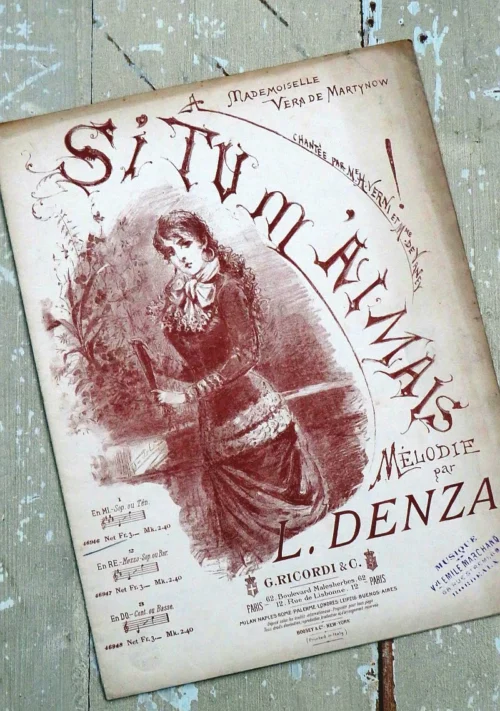 A MADEMOISELLE
VERA DE MARTYNOW
SI TU M'AIMAIS !
MÉLODIE
par
L. DENZA
1
En MI.-Sop. ou Tén.
46946 Net Fr. 3.— Mk. 2.40
En RE.-Mezzo-Sop. ou Bar.
46947 Net Fr. 3.— Mk. 2.40
En DO.-Cont. ou Basse.
46948 Net Fr. 3.— Mk. 2.40
G. RICORDI & C.
PARIS — 62. Boulevard Malesherbes. 62 — PARIS
12. - Rue de Lisbonne. - 12
MILAN-NAPLES-ROME-PALERME-LONDRES-LEIPZIG-BUENOS-AIRES
BOOSEY & C°. NEW-YORK
(Printed in Italy)
MUSIQUE
Vve EMILE MARCHAND